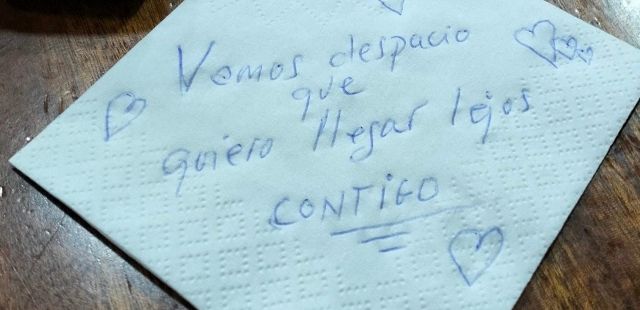 Vamos despacio
que
quiero llegar lejos
CONTiGO